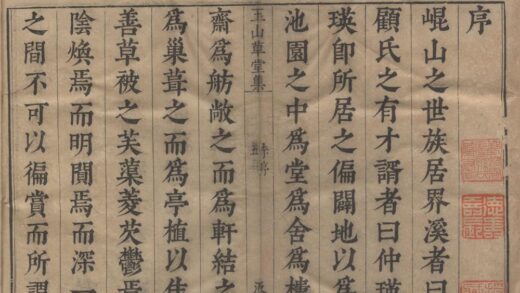 序
崐山之世族居界溪者曰
顧氏之有才諝者曰仲瑛
瑛即所居之偏闢地以爲
池園之中爲堂爲舍爲樓
玉山草堂集 序
齋爲舫敞之而爲軒結之
爲巢葺之而爲亭植以佳
善草被之芙蕖菱芡鬱焉
陰煥焉而明閴焉而深一
之間不可以徧賞而所謂